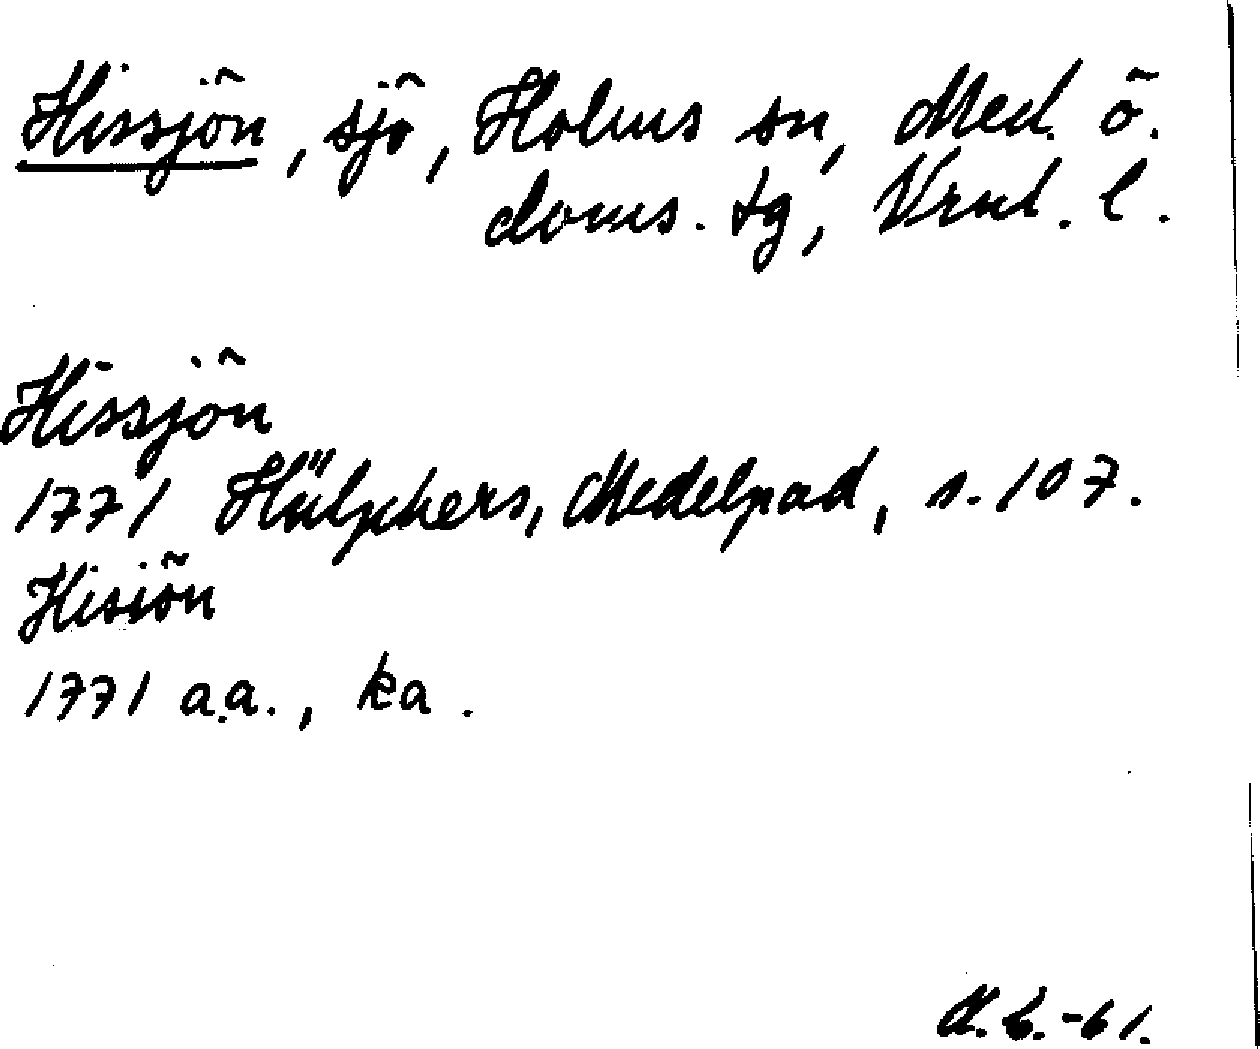 Hissjön, sjö, Holms sn, Med. ö.
doms. tg, Vrnl. l.
Hissjön
1771 Hülphers, Medelpad, s. 107.
Hisiön
1771 a.a., ka.
-61.